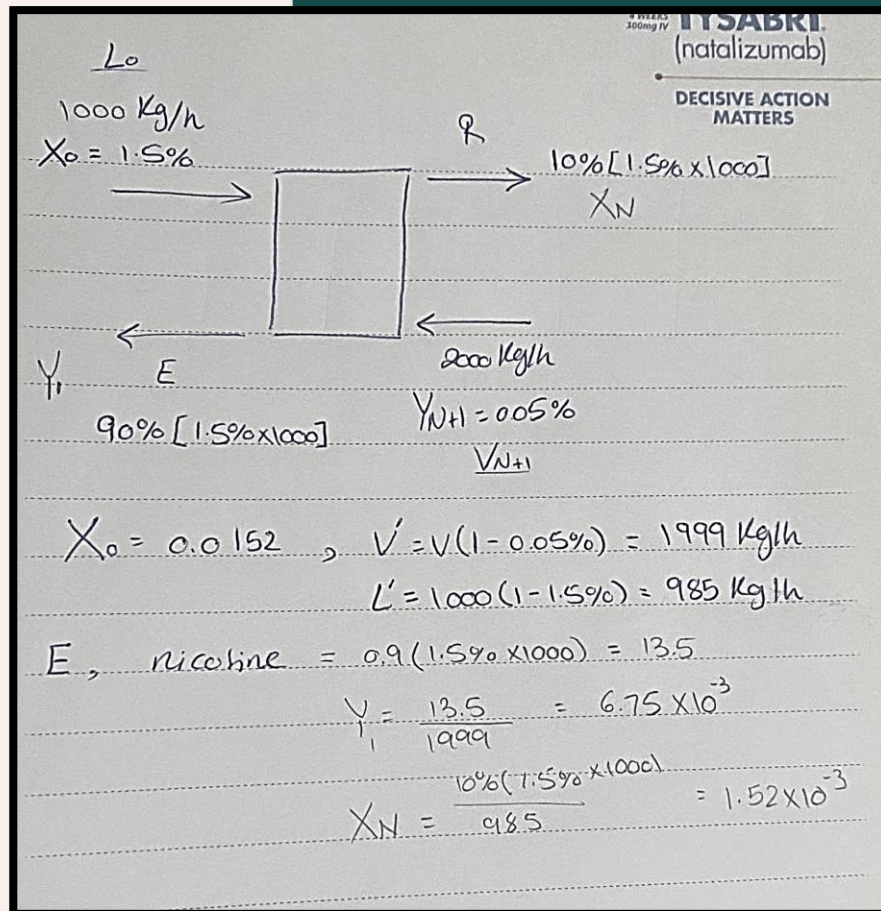 4 WEEKS
300mg IV
TYSABRI
(natalizumab)
DECISIVE ACTION
MATTERS
L₀
1000 Kg/h
X₀ = 1.5%
R
10% [1.5% x 1000]
X_N
Y₁
E
90% [1.5% x 1000]
2000 Kg/h
Y_N+1 = 0.05%
V_N+1
X₀ = 0.0152 , V́ = V(1 - 0.05%) = 1999 Kg/h
Ĺ = 1000 (1 - 1.5%) = 985 Kg/h
E, nicotine = 0.9 (1.5% x 1000) = 13.5
Y₁ = 13.5 / 1999 = 6.75 x 10⁻³
X_N = 10% (1.5% x 1000) / 985 = 1.52 x 10⁻³